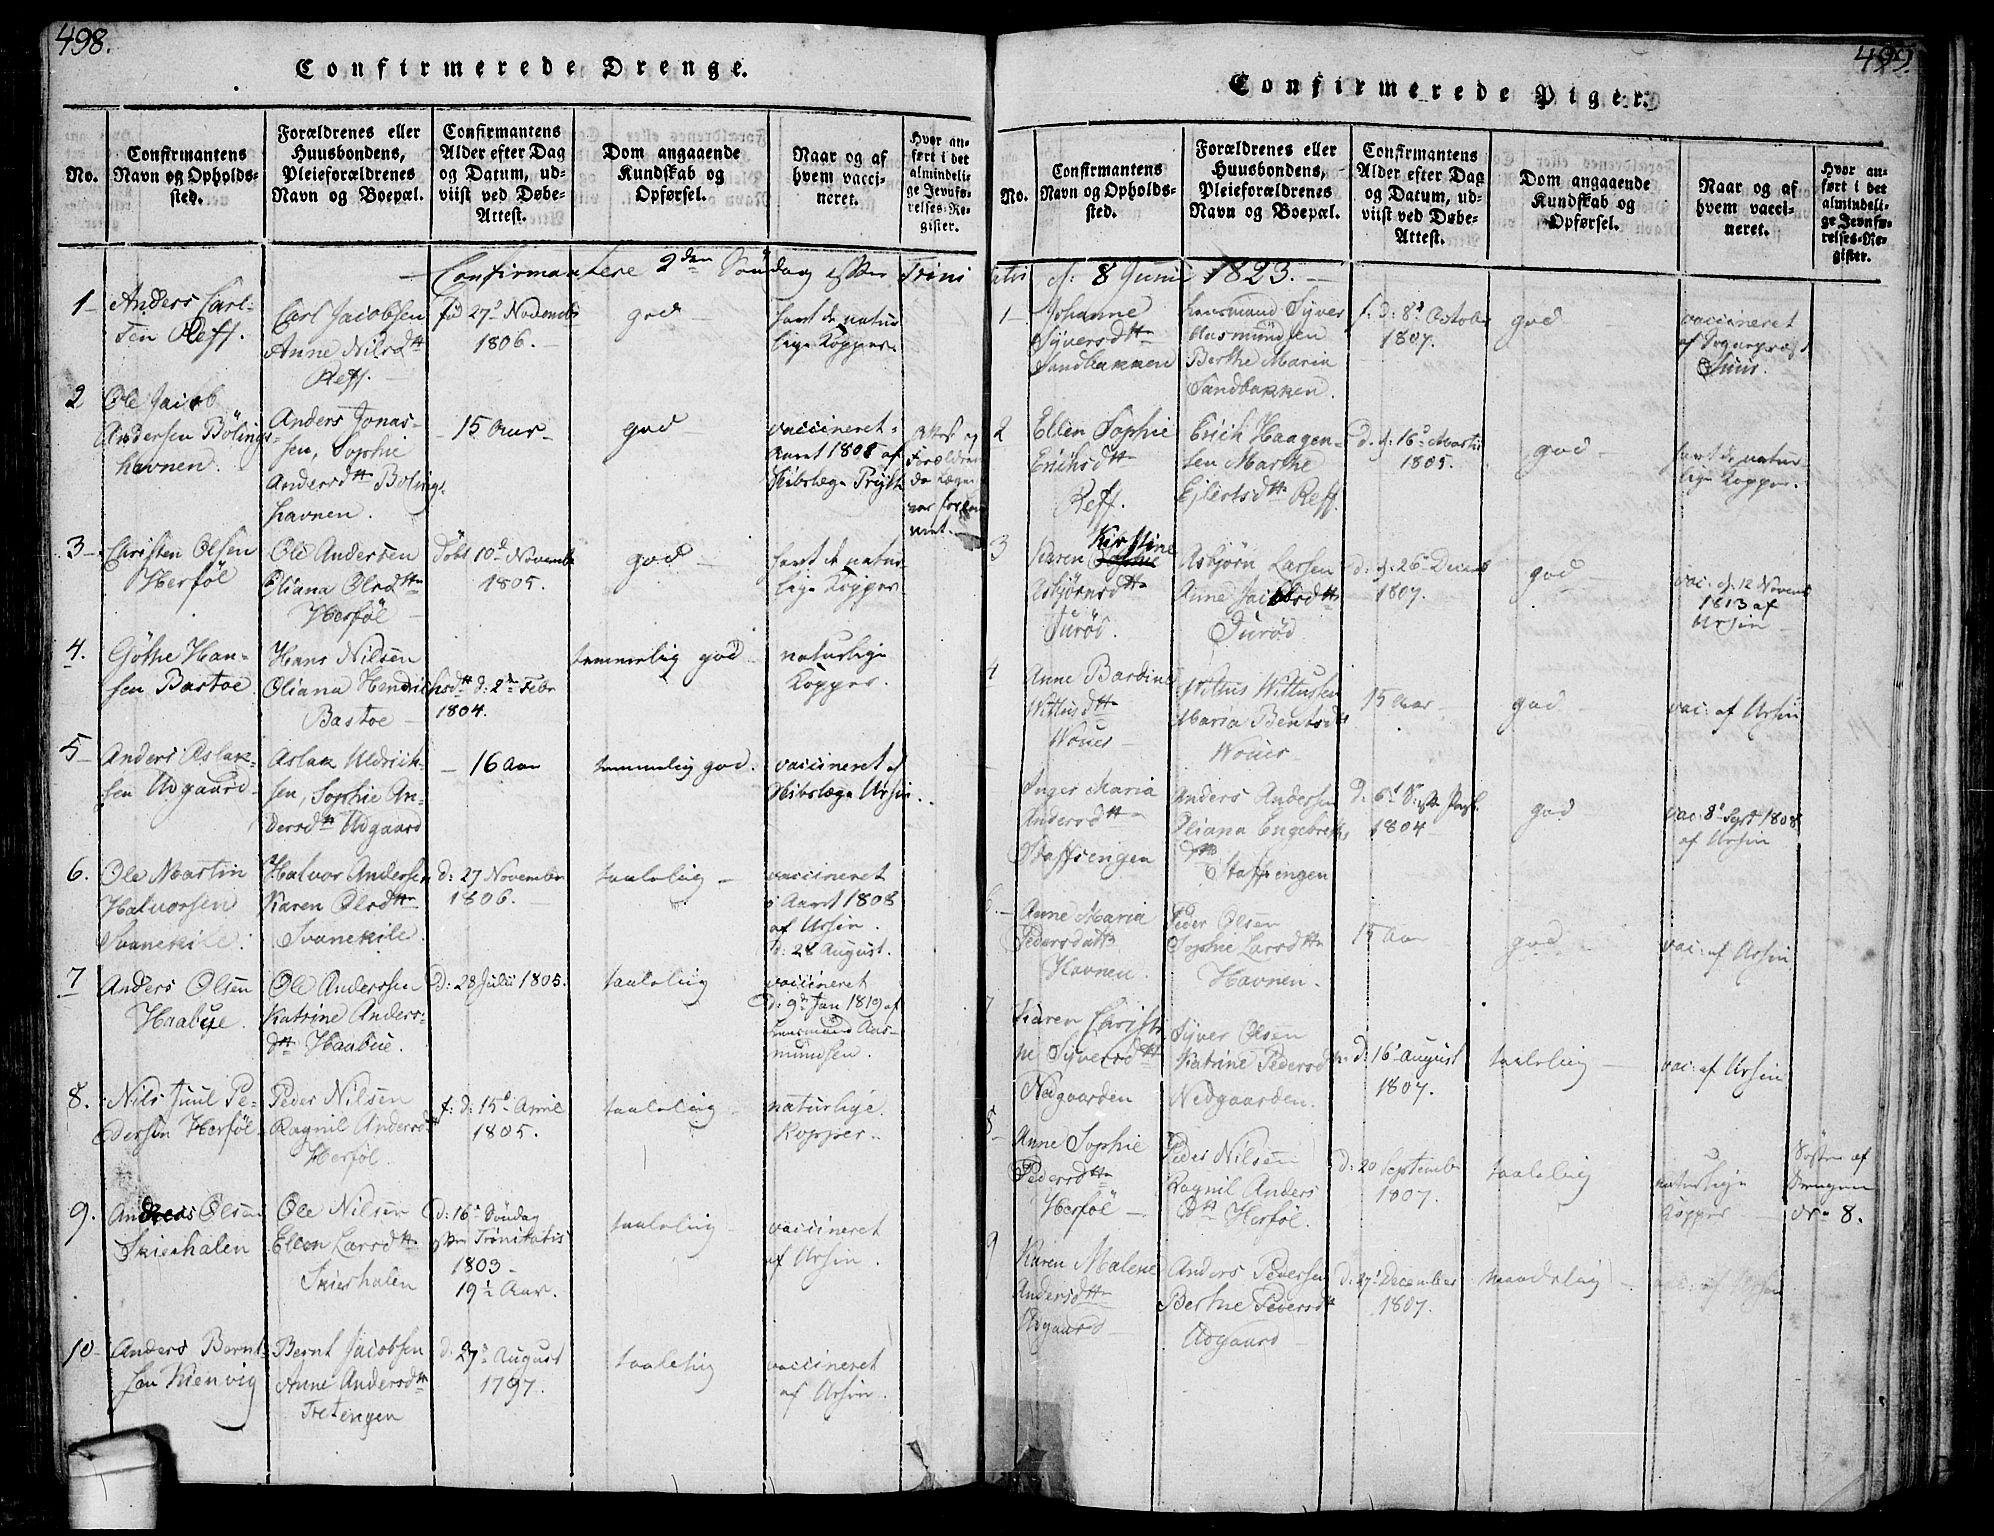 498.
Confirmerede Drenge.
No.
Confirmantens
Navn og Opholds-
sted.
Forældrenes eller
Huusbondens,
Pleieforældrenes
Navn og Boepæl.
Confirmantens
Alder efter Dag
og Datum, ud-
viist ved Døbe-
Attest.
Dom angaaende
Kundskab og
Opførsel.
Naar og af
hvem vacci-
neret.
Hvor an-
ført i det
almindeli-
ge Jevnfø-
relses-Re-
gister.
Confirmantere 2den Søndag efter Trini
1
Anders Carl-
sen Reff.
Carl Jacobsen
Anne Nilsdtt
Reff.
fød 27d Novemb
1806.
god
havt de natur
lige Kopper
2
Ole Jacob
Andersen Bölings-
havnen.
Anders Jonas-
sen, Sophie
Andersdtt Bölings
havnen.
15 Aar
god
vaccineret
Aaret 1808 af
3
Christen Olsen
Herföl
Ole Andersen
Oliana Olsdtt
Herföl
Döbt 10d Novemb
1805.
god
havt de natur
lige Kopper
4.
Göthe Han-
sen Bastoe
Hans Nilsen
Oliana Hendrichsdtt
Bastoe
d: 2d Febr
1804.
temmelig god
naturlige
Kopper.
5
Anders Aslak-
sen Udgaard
Aslak Uldrich-
sen, Sophie An-
dersdtt Udgaard
16 Aar
temmelig god.
vaccineret af
Ursin.
6.
Ole Martin
Halvorsen
Svanekile.
Halvor Andersen
Karen Olsdtt
Svanekile.
d: 27 November
1806.
taalelig
vaccineret
i Aaret 1808
af Ursin.
d: 28 August.
7
Anders Olsen
Haabue.
Ole Anderssen
Katrine Anders-
dtt Haabue.
d: 28 Julii 1805.
taalelig
vaccineret
d: 9de Jan 1819 af
Aas-
mundsen.
8.
Nils Juul Pe-
dersen Herföl
Peder Nilsen
Ragnil Andersdtt
Herföl.
f: d: 15d April
1805.
taalelig
naturlige
Kopper.
9.
Andreas Olsen
Skieshalen
Ole Nilsen
Ellen Larsdtt
Skieshalen
d: 16d Söndag
Trinitatis
1803
19½ Aar.
taalelig
vaccineret
af Ursin.
10
Anders Bernt-
sen Kienvig
Bernt Jacobsen
Anne Andersdtt
Tretengen
d: 27d August
1797.
taalelig
vaccineret
af Ursin.
499.
Confirmerede Piger.
No.
Confirmantens
Navn og Opholds-
sted.
Forældrenes eller
Huusbondens,
Pleieforældrenes
Navn og Boepæl.
Confirmantens
Alder efter Dag
og Datum, ud-
viist ved Døbe-
Attest.
Dom angaaende
Kundskab og
Opførsel.
Naar og af
hvem vacci-
neret.
Hvor an-
ført i det
almindeli-
ge Jevnfø-
relses-Re-
gister.
tatis d: 8 Juni 1823.
1
Johanne
Syversdtt
Sandbakken
Huusmand Syver
Asmundsen
Berthe Maria
Sandbakken.
f. d: 8d Octob
1807.
god
vaccineret
af Sogneprest
2
Ellen Sophie
Erichsdtt
Reff.
Erich Haagen-
sen Marthe
Ejlertsdtt Reff.
d. 16d Marti
1805.
god
havt de natur
lige Kopper.
3
Karen Kirstine
Asbjörnsdtt
Turöd.
Asbjörn Larsen
Anne Jacobsdtt
Turöd
d. 26d Decemb
1807.
god
vac. d. 12 Novemb
1813 af
Ursin
4
Anne Bardine
Wittusdtt
Wouer
Wittus Wittusen
Maria Bentsdtt
Wouer
15 Aar
god
vac: af Ursin
Inger Maria
Andersdtt
Staffsengen
Anders Andersen
Oliana Engebrets
dtt
Staffsengen
D: 6d S:
1804
god
vac: 8d Sept 1808
af Ursin
6.
Anne Maria
Pedersdatt
Havnen.
Peder Olsen
Sophie Larsdtt
Havnen.
15 Aar
god
vac: af Ursin
7
Karen Christi
ne Syversdtt
Nedgaarden
Syver Olsen
Katrine Pedersdtt
Nedgaarden.
d: 16d August
1807.
taalelig
vac: af Ursin
8
Anne Sophie
Pedersdtt
Herföl
Peder Nilsen
Ragnil Anders
dtt Herföl.
d: 20 September
1807.
taalelig
naturlige
Kopper
Söster af
Drengen
No 8.
9
Karen Malene
Andersdtt
Asgaard
Anders Pedersen
Berthe Pedersdtt
Asgaard
d: 27d December
1807.
maadelig
vac: af Ursin